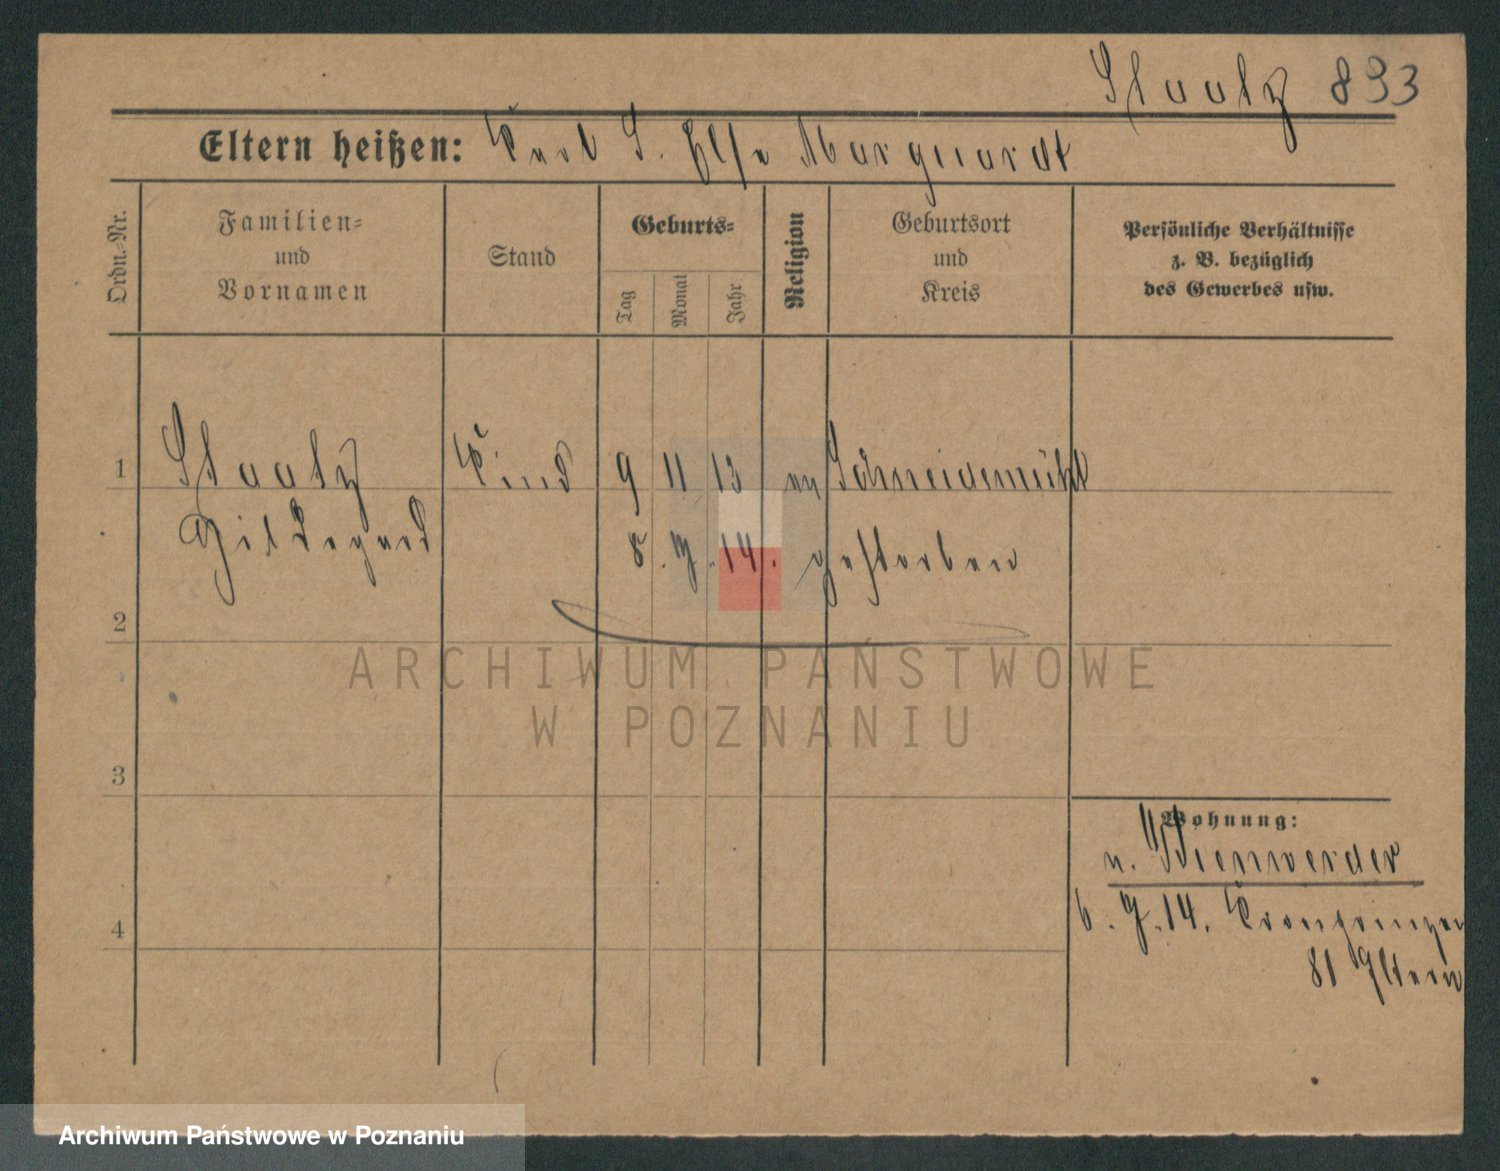 Staatz 893
Eltern heißen: Karl S. Else Marquardt
Ordn.-Nr.
Familien-
und
Vornamen
Stand
Geburts-
Tag
Monat
Jahr
Religion
Geburtsort
und
Kreis
Persönliche Verhältnisse
z. B. bezüglich
des Gewerbes usw.
1 Staatz Kind 9 11 13 ev Schneidemühl
Hildegard 8. 7. 14. gestorben
2
3
4
Wohnung:
n. Bienwerder
6. 7. 14. Kronprinzen
81 Eltern
ARCHIWUM PAŃSTWOWE
W POZNANIU
Archiwum Państwowe w Poznaniu